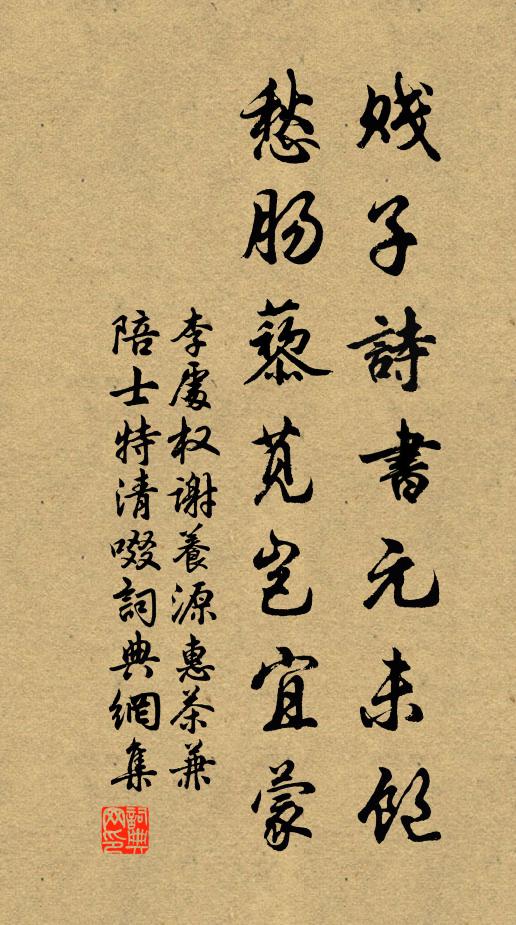 賤子詩書元未飽
愁腸藜莧豈宜蒙
李處权謝養源惠茶兼
陪士特清啜詞典網集
詞典网印